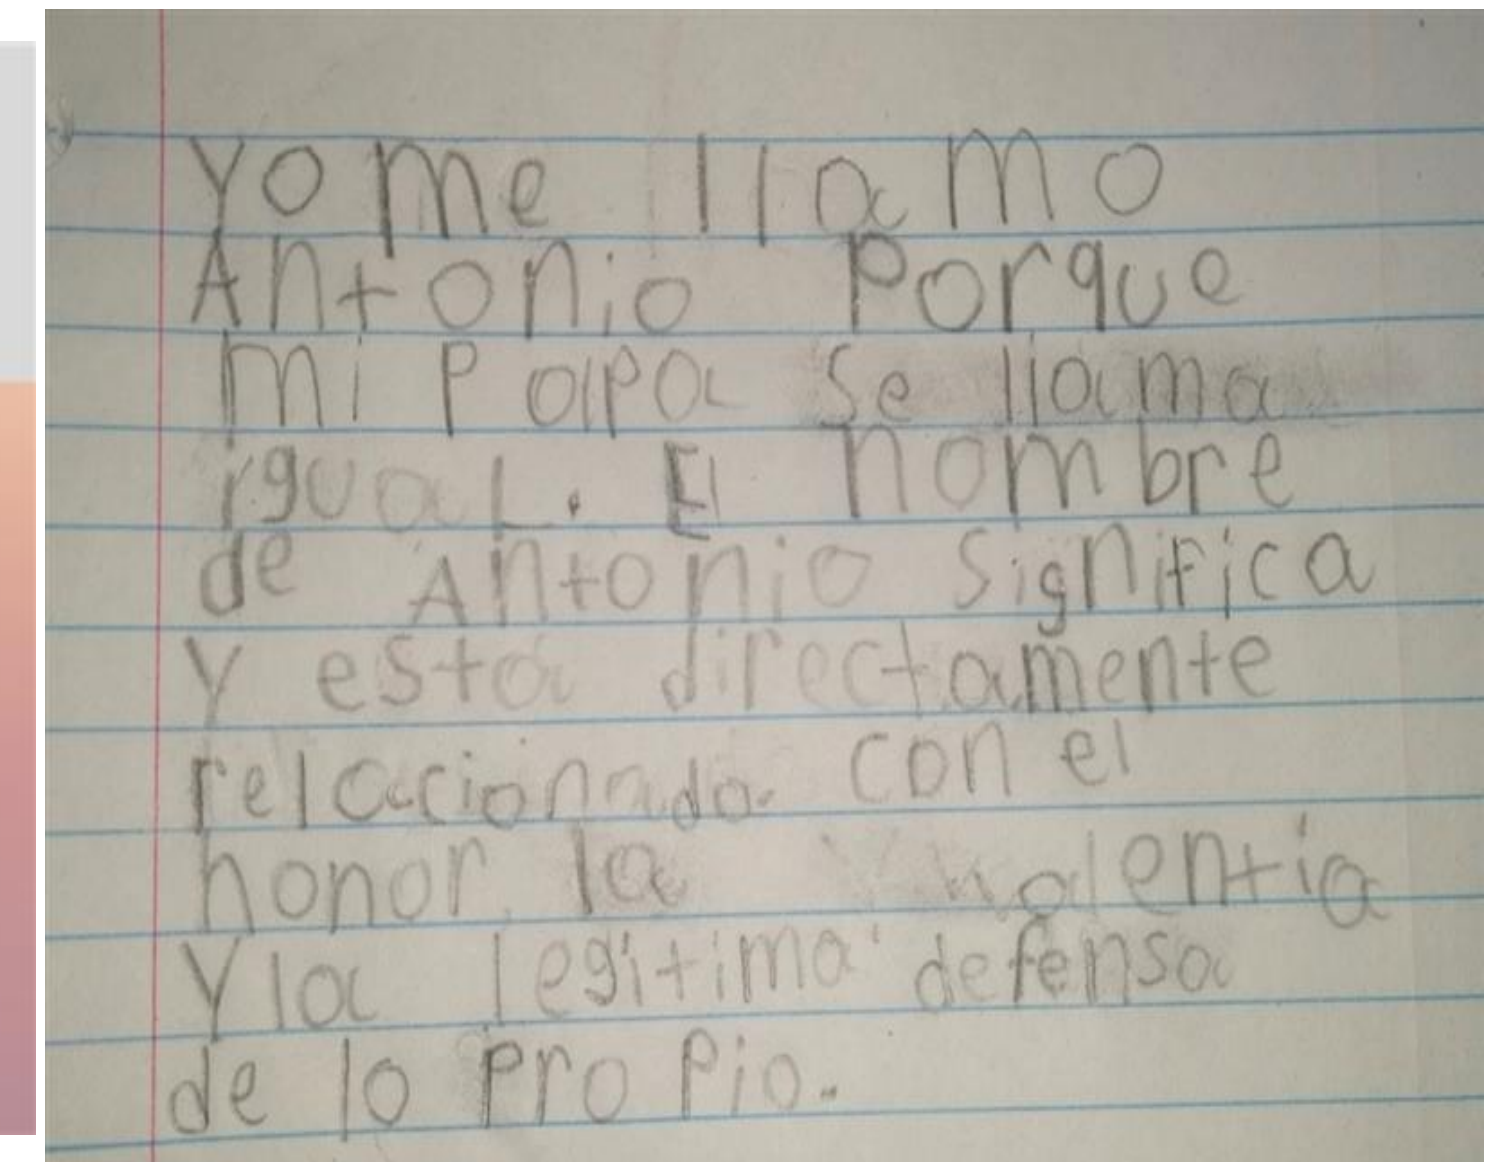 Yo me llamo
Antonio Porque
mi papa se llama
igual. El nombre
de Antonio significa
y esta directamente
relacionado con el
honor, la valentia
y la legitima defensa
de lo propio.